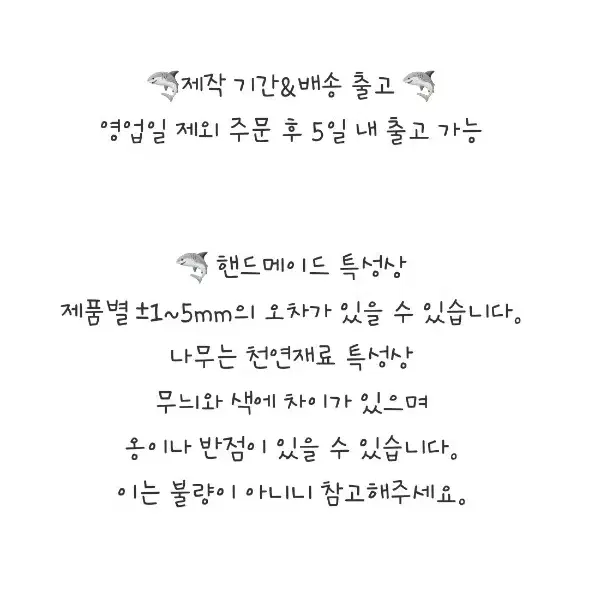 제작 기간&배송 출고
영업일 제외 주문 후 5일 내 출고 가능
핸드메이드 특성상
제품별 ±1~5mm의 오차가 있을 수 있습니다.
나무는 천연재료 특성상
무늬와 색에 차이가 있으며
옹이나 반점이 있을 수 있습니다.
이는 불량이 아니니 참고해주세요.